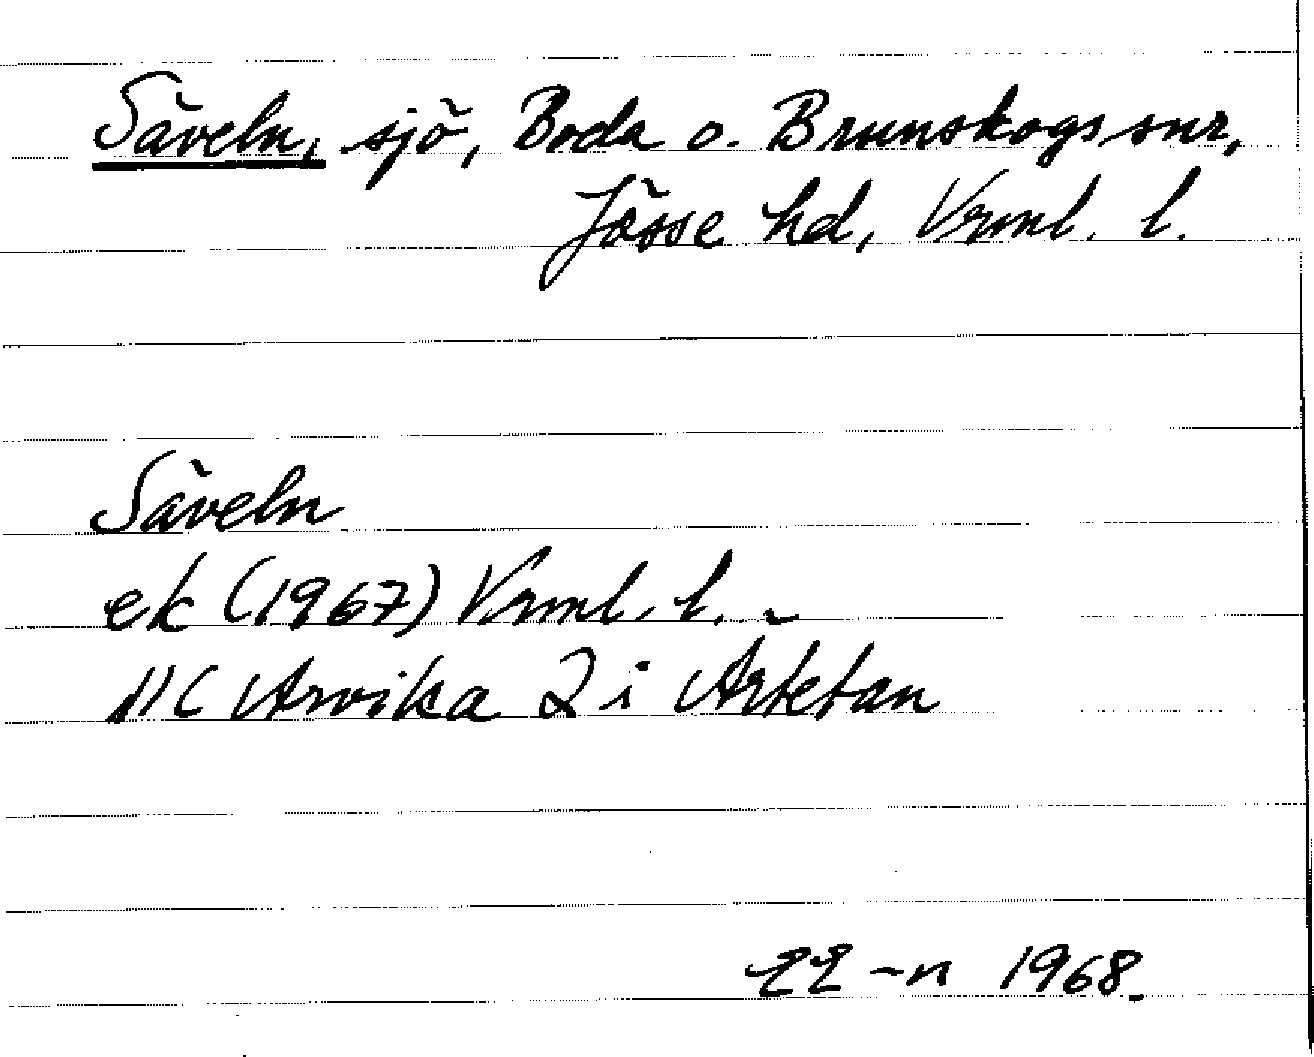 Säveln, sjö, Boda o. Brunskogs snr,
Jösse hd, Vrml. l.
Säveln
ek (1967) Vrml. l.
11C Arvika 2 i Ärtetan
EE-n 1968.